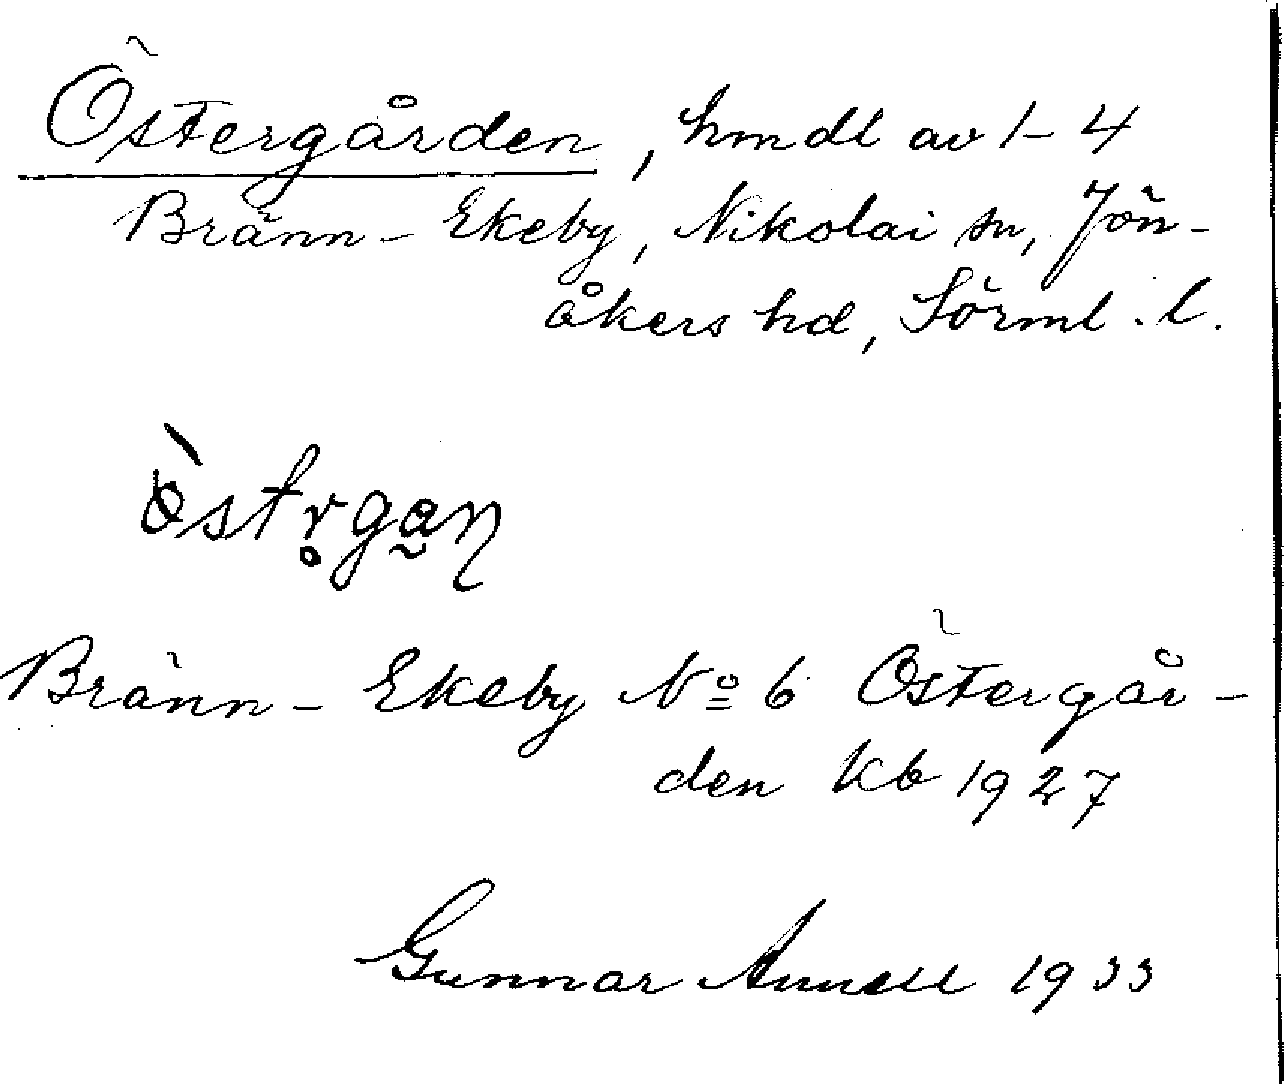 Östergården, hmdl av 1-4
Bränn-Ekeby, Nikolai sn, Jön-
åkers hd, Sörml. l.
Bränn-Ekeby No 6 Östergår-
den kb 1927
Gunnar Annell 1933